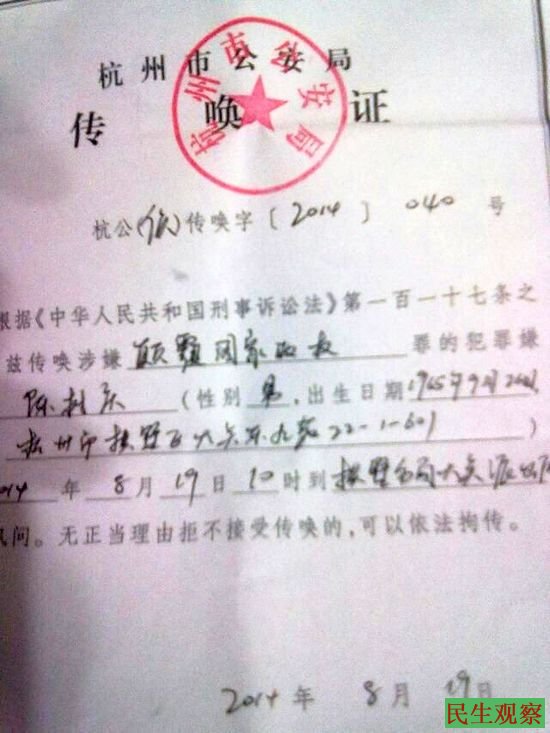 杭州市公安局
杭州市公安局
传唤证
杭公()传唤字〔2014〕040号
根据《中华人民共和国刑事诉讼法》第一百一十七条之
兹传唤涉嫌颠覆国家政权罪的犯罪嫌
陈树庆(性别男,出生日期1965年9月26日,
杭州市拱墅区大关东九苑22-1-601)
2014年8月19日10时到拱墅分局大关派出所
讯问。无正当理由拒不接受传唤的,可以依法拘传。
2014年8月19日
民生观察